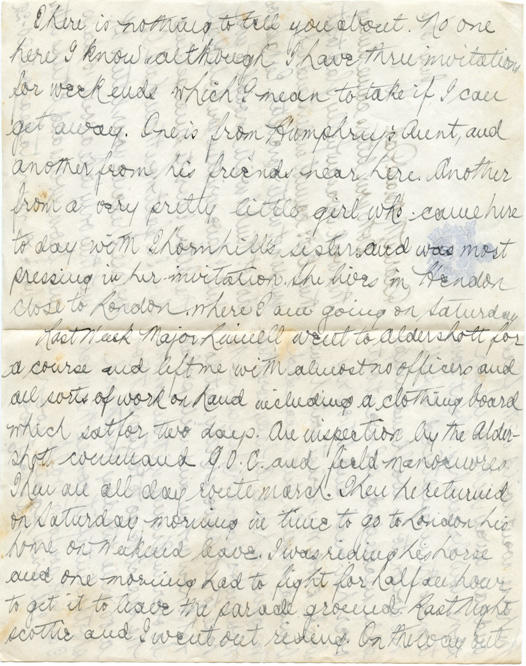 There is nothing to tell you about. No one
here I know although I have three invitations
for week ends which I mean to take if I can
get away. One is from Humphrys Aunt, and
another from his friends near here. Another
from a very pretty little girl who came here
to day with Thornhill's sister and was most
pressing in her invitation. She lives in Hendon
close to London where I am going on Saturday
Last Week Major went to Aldershott for
a course and left me with almost no officers and
all sorts of work on hand including a clothing board
which sat for two days. An inspection by the Alder-
shot command G.O.C. and field manoeuvres
Then an all day route march. Then he returned
on Saturday morning in time to go to London his
home on weekend leave. I was riding his horse
and one morning had to fight for half an hour
to get it to leave the parade ground. Last night
scottie and I went out riding. On the way out